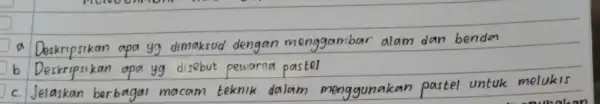 a Deskripsikan apa yg dimaksud dengan menggambar alam dan benda
b Deskripsikan apa yg disebut pewarna pastel
c. Jelaskan berbagai macam teknik dalam menggunakan pastel untuk melukis